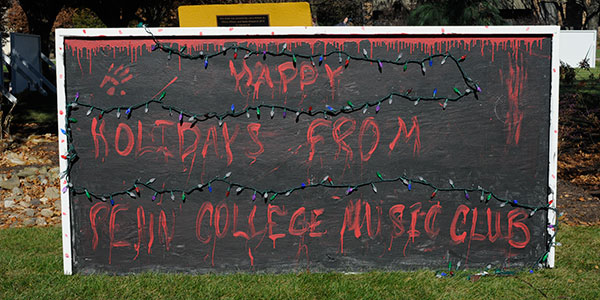 HAPPY
HOLIDAYS FROM
PENN COLLEGE MUSIC CLUB